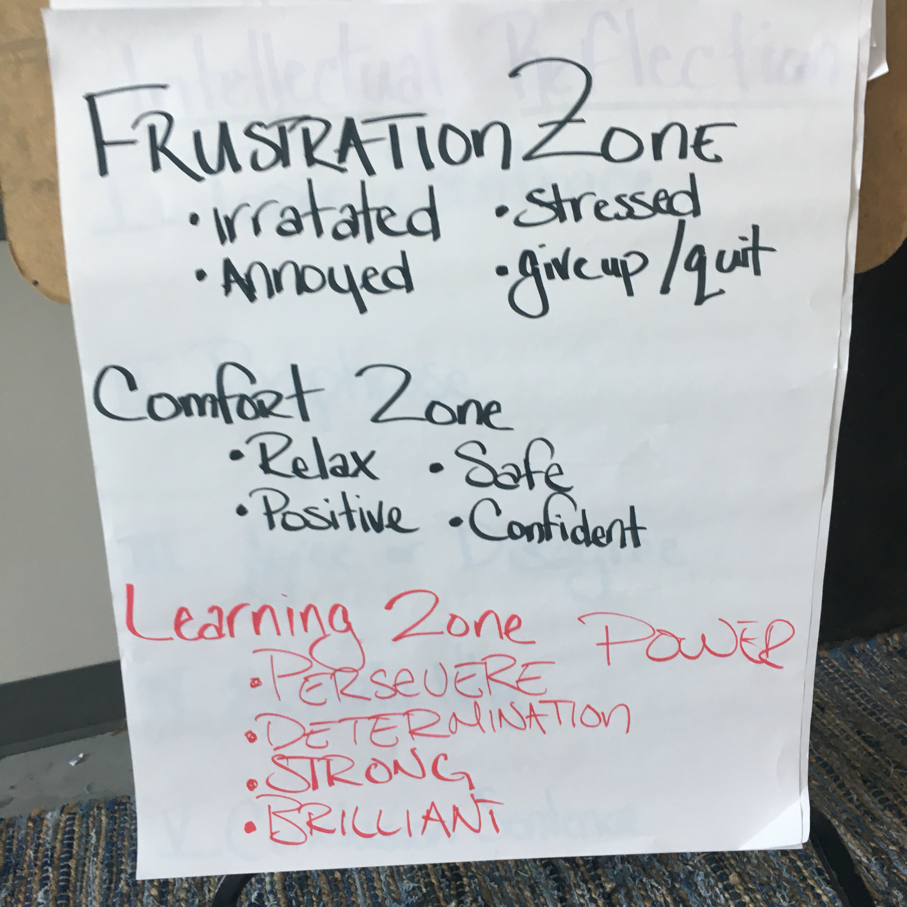 Intellectual Reflection
FRUSTRATION ZONE
• Irratated • Stressed
• Annoyed • give up / quit
Comfort Zone
• Relax • Safe
• Positive • Confident
Learning Zone POWER
• PERSEVERE
• DETERMINATION
• STRONG
• BRILLIANT